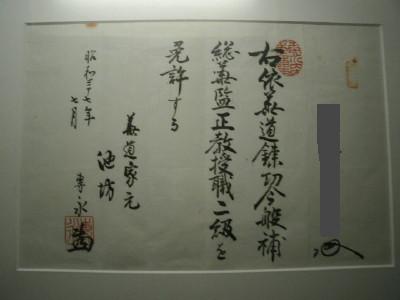 右依華道錬功今般補
総華監正教授職二級を
免許する
昭和三十七年
七月
華道家元
池坊
専永